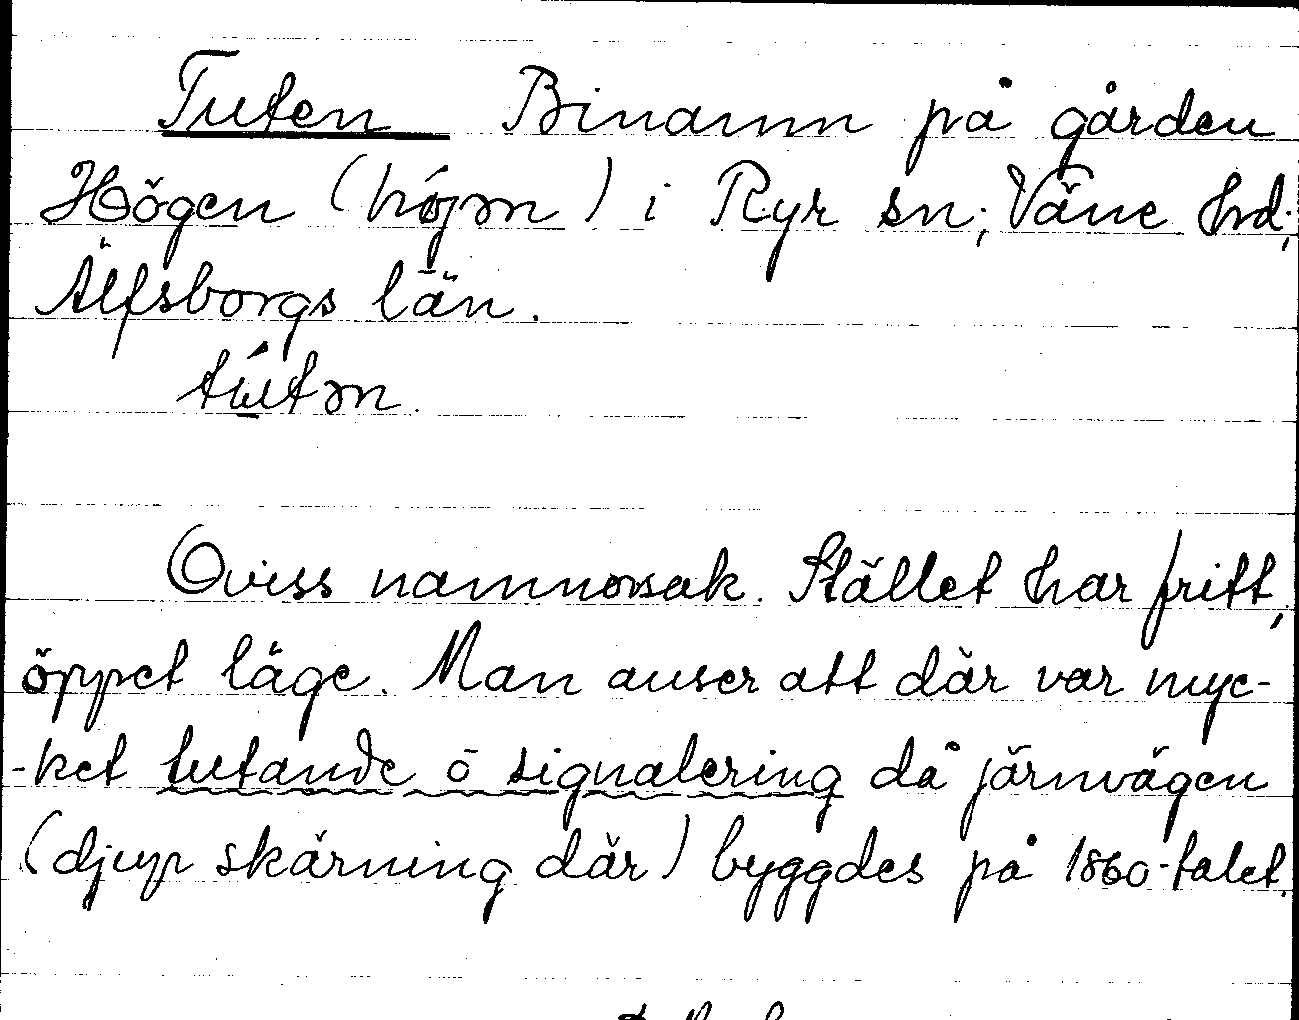 Tuten Binamn på gården
Högen (hǿjən) i Ryr sn; Väne hd;
Älfsborgs län.
tútən.
Oviss namnorsak. Stället har fritt,
öppet läge. Man anser att där var myc-
-ket tutande o signalering då järnvägen
(djup skärning där) byggdes på 1860-talet.